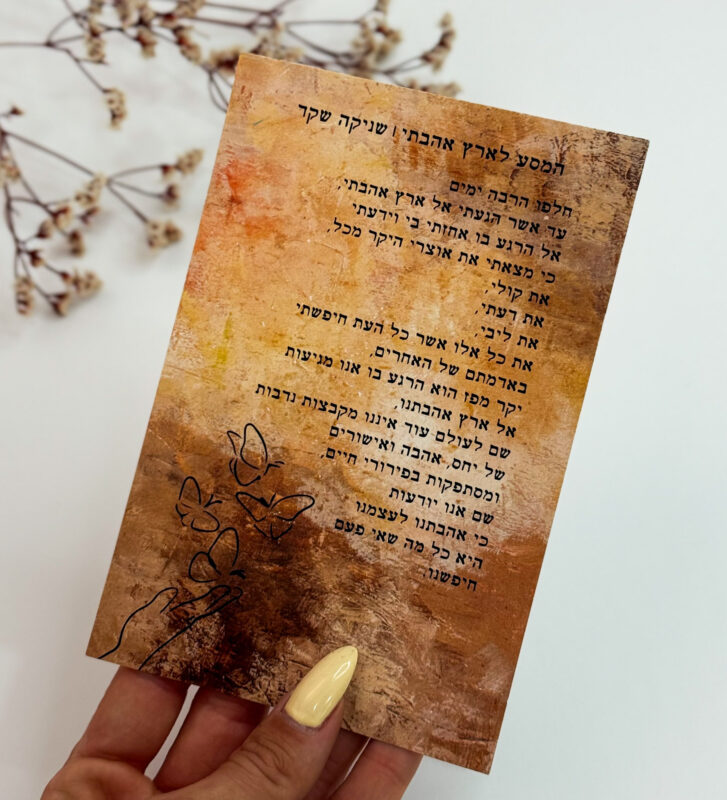 המסע לארץ אהבתי | שניקה שקד
חלפו הרבה ימים
עד אשר הגעתי אל ארץ אהבתי,
אל הרגע בו אחזתי בי וידעתי
כי מצאתי את אוצרי היקר מכל,
את קולי,
את דעתי,
את ליבי,
את כל אלו אשר כל העת חיפשתי
באדמתם של האחרים.
יקר מפז הוא הרגע בו אנו מגיעות
אל ארץ אהבתנו,
שם לעולם עוד איננו מקבצות נדבות
של יחס, אהבה ואישורים
ומסתפקות בפירורי חיים,
שם אנו יודעות
כי אהבתנו לעצמנו
היא כל מה שאי פעם
חיפשנו.